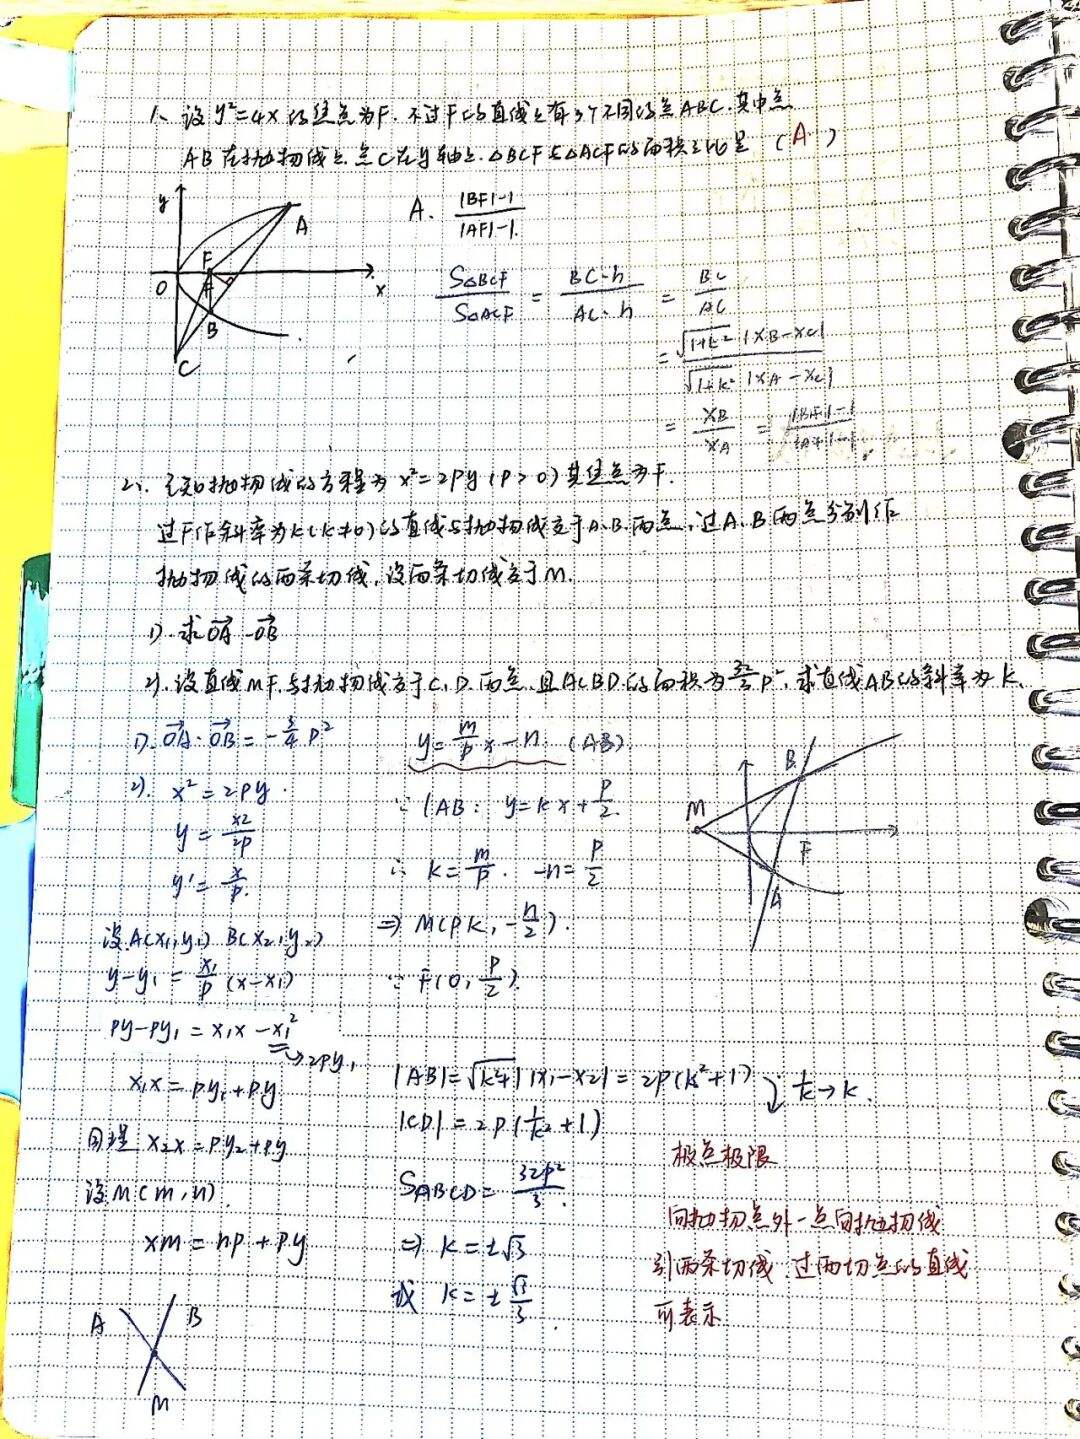 1、设y²=4x的焦点为F.不过F的直线上有3个不同的点ABC.其中点
AB在抛物线上.点C在y轴上.△BCF与△ACF的面积之比是 (A)
A. |BF|-1 / |AF|-1.
y
A
F
O
x
B
C
S△BCF / S△ACF = BC·h / AC·h = BC / AC
= √1+k² |xB-xC| / √1+k² |xA-xC|
= xB / xA = |BF|-1 / |AF|-1
2、已知抛物线的方程为x²=2py(p>0)其焦点为F.
过F作斜率为k(k≠0)的直线与抛物线交于A.B.两点,过A.B两点分别作
抛物线的两条切线,设两条切线交于M.
1).求OA·OB
2).设直线MF.与抛物线交于C.D.两点.且ACBD的面积为32/3 p².求直线AB的斜率为k.
1).OA·OB=-3/4 p²
2). x²=2py.
y=x²/2p
y'=x/p.
设A(x₁,y₁) B(x₂,y₂)
y-y₁=x₁/p (x-x₁)
py-py₁=x₁x-x₁²
→2py₁
x₁x=py₁+py
同理 x₂x=py₂+py
设M(m,n)
xm=np+py
A B
M
y=m/p x-n (AB)
∵ lAB: y=kx+p/2.
∴ k=m/p. -n=p/2
⇒ M(pk,-n/2).
∵ F(0,p/2).
|AB|=√k²+1 |x₁-x₂|=2p(k²+1)
1/k→k.
|CD|=2p(1/k²+1)
SABCD=32p²/3.
⇒ k=±√3
或 k=±√3/3.
B
M
F
A
极点极限
向抛物点外一点向抛物线
引两条切线.过两切点的直线
可表示